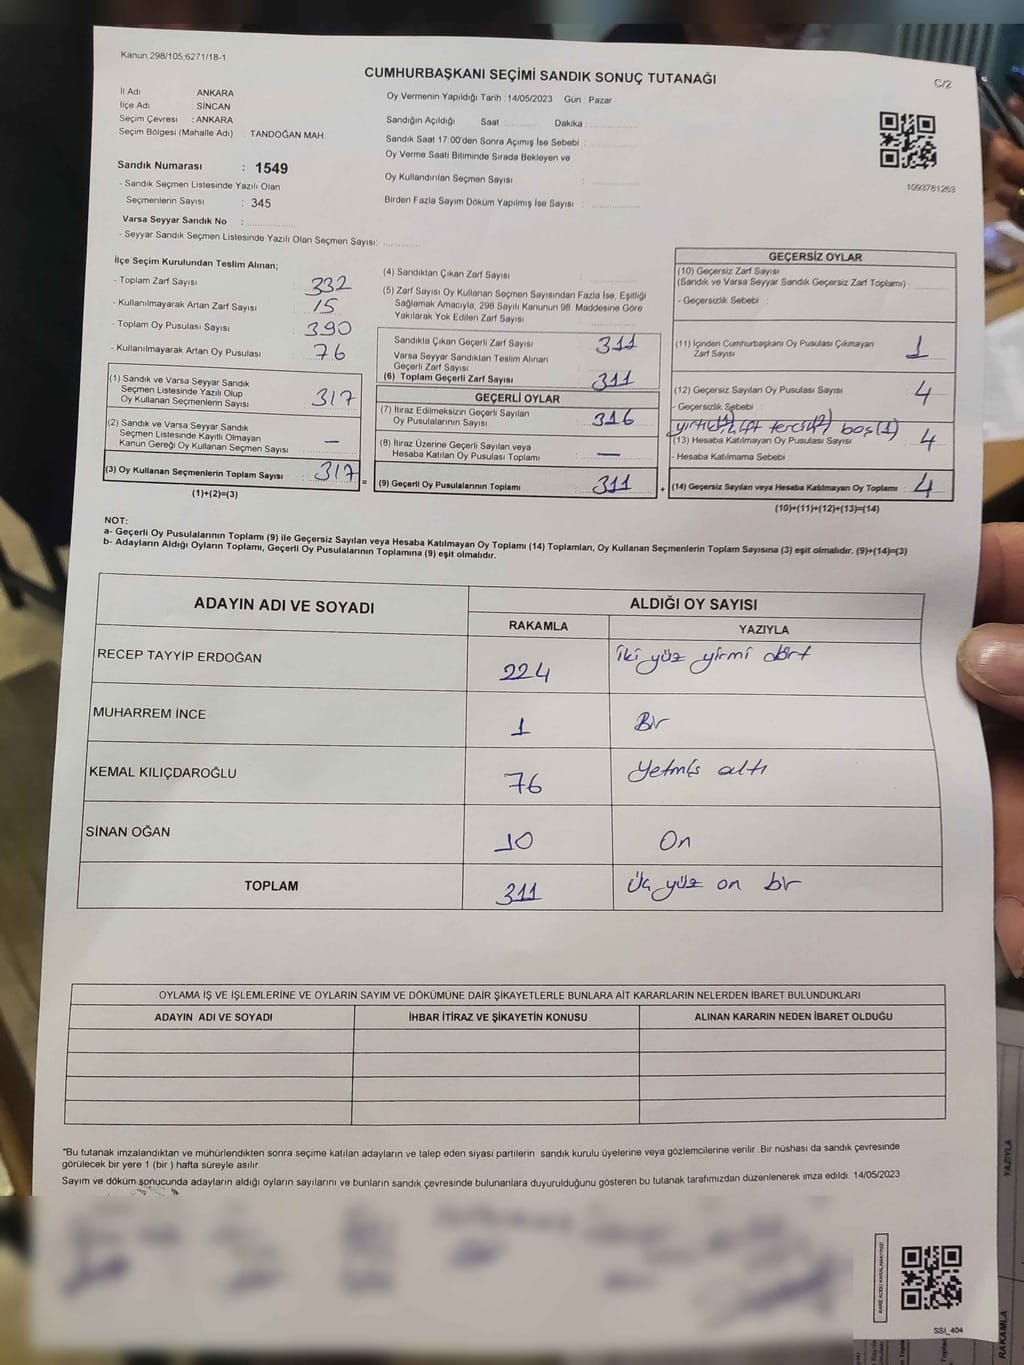 Kanun,298/105,6271/18-1
CUMHURBAŞKANI SEÇİMİ SANDIK SONUÇ TUTANAĞI
C/2
İl Adı ANKARA
İlçe Adı SİNCAN
Seçim Çevresi : ANKARA
Seçim Bölgesi (Mahalle Adı) : TANDOĞAN MAH.
Oy Vermenin Yapıldığı Tarih : 14/05/2023 Gün : Pazar
Sandığın Açıldığı Saat : Dakika :
Sandık Saat 17:00'den Sonra Açımış İse Sebebi :
Oy Verme Saati Bitiminde Sırada Bekleyen ve
Oy Kullandırılan Seçmen Sayısı :
Birden Fazla Sayım Döküm Yapılmış İse Sayısı :
1093761268
Sandık Numarası : 1549
- Sandık Seçmen Listesinde Yazılı Olan
Seçmenlerin Sayısı : 345
Varsa Seyyar Sandık No :
- Seyyar Sandık Seçmen Listesinde Yazılı Olan Seçmen Sayısı:
İlçe Seçim Kurulundan Teslim Alınan;
- Toplam Zarf Sayısı : 332
- Kullanılmayarak Artan Zarf Sayısı : 15
- Toplam Oy Pusulası Sayısı : 390
- Kullanılmayarak Artan Oy Pusulası : 76
(1) Sandık ve Varsa Seyyar Sandık
Seçmen Listesinde Yazılı Olup
Oy Kullanan Seçmenlerin Sayısı : 317
(2) Sandık ve Varsa Seyyar Sandık
Seçmen Listesinde Kayıtlı Olmayan
Kanun Gereği Oy Kullanan Seçmen Sayısı : —
(3) Oy Kullanan Seçmenlerin Toplam Sayısı : 317
(1)+(2)=(3)
(4) Sandıktan Çıkan Zarf Sayısı :
(5) Zarf Sayısı Oy Kullanan Seçmen Sayısından Fazla İse, Eşitliği
Sağlamak Amacıyla, 298 Sayılı Kanunun 98. Maddesine Göre
Yakılarak Yok Edilen Zarf Sayısı :
Sandıkta Çıkan Geçerli Zarf Sayısı : 311
Varsa Seyyar Sandıktan Teslim Alınan
Geçerli Zarf Sayısı :
(6) Toplam Geçerli Zarf Sayısı : 311
GEÇERLİ OYLAR
(7) İtiraz Edilmeksizin Geçerli Sayılan
Oy Pusulalarının Sayısı : 316
(8) İtiraz Üzerine Geçerli Sayılan veya
Hesaba Katılan Oy Pusulası Toplamı : —
= (9) Geçerli Oy Pusulalarının Toplamı : 311 +
GEÇERSİZ OYLAR
(10) Geçersiz Zarf Sayısı
(Sandık ve Varsa Seyyar Sandık Geçersiz Zarf Toplamı)
- Geçersizlik Sebebi :
(11) İçinden Cumhurbaşkanı Oy Pusulası Çıkmayan
Zarf Sayısı : 1
(12) Geçersiz Sayılan Oy Pusulası Sayısı : 4
- Geçersizlik Sebebi :
boş(1)
(13) Hesaba Katılmayan Oy Pusulası Sayısı : 4
- Hesaba Katılmama Sebebi
(14) Geçersiz Sayılan veya Hesaba Katılmayan Oy Toplamı : 4
(10)+(11)+(12)+(13)=(14)
NOT:
a- Geçerli Oy Pusulalarının Toplamı (9) ile Geçersiz Sayılan veya Hesaba Katılmayan Oy Toplamı (14) Toplamları, Oy Kullanan Seçmenlerin Toplam Sayısına (3) eşit olmalıdır. (9)+(14)=(3)
b- Adayların Aldığı Oyların Toplamı, Geçerli Oy Pusulalarının Toplamına (9) eşit olmalıdır.
ADAYIN ADI VE SOYADI ALDIĞI OY SAYISI
RAKAMLA YAZIYLA
RECEP TAYYİP ERDOĞAN 224 İki yüz yirmi dört
MUHARREM İNCE 1 Bir
KEMAL KILIÇDAROĞLU 76 Yetmiş altı
SİNAN OĞAN 10 On
TOPLAM 311 Üç yüz on bir
OYLAMA İŞ VE İŞLEMLERİNE VE OYLARIN SAYIM VE DÖKÜMÜNE DAİR ŞİKAYETLERLE BUNLARA AİT KARARLARIN NELERDEN İBARET BULUNDUKLARI
ADAYIN ADI VE SOYADI İHBAR İTİRAZ VE ŞİKAYETİN KONUSU ALINAN KARARIN NEDEN İBARET OLDUĞU
"Bu tutanak imzalandıktan ve mühürlendikten sonra seçime katılan adayların ve talep eden siyasi partilerin sandık kurulu üyelerine veya gözlemcilerine verilir. Bir nüshası da sandık çevresinde
görülecek bir yere 1 (bir ) hafta süreyle asılır.
Sayım ve döküm sonucunda adayların aldığı oyların sayılarını ve bunların sandık çevresinde bulunanlara duyurulduğunu gösteren bu tutanak tarafımızdan düzenlenerek imza edildi. 14/05/2023
SSI_404
YAZIYLA
RAKAMLA